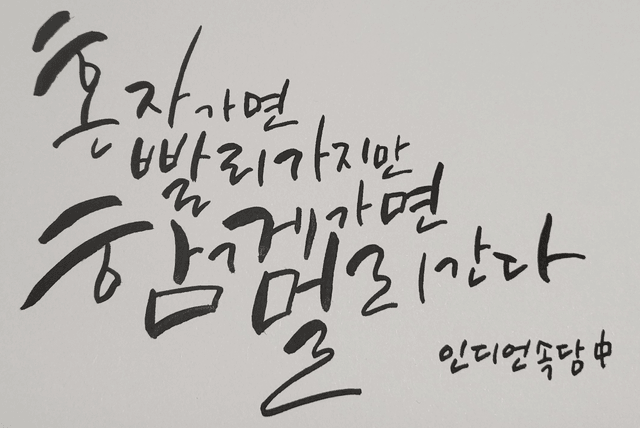 혼자가면
빨리가지만
함께가면
멀리간다
인디언속담中